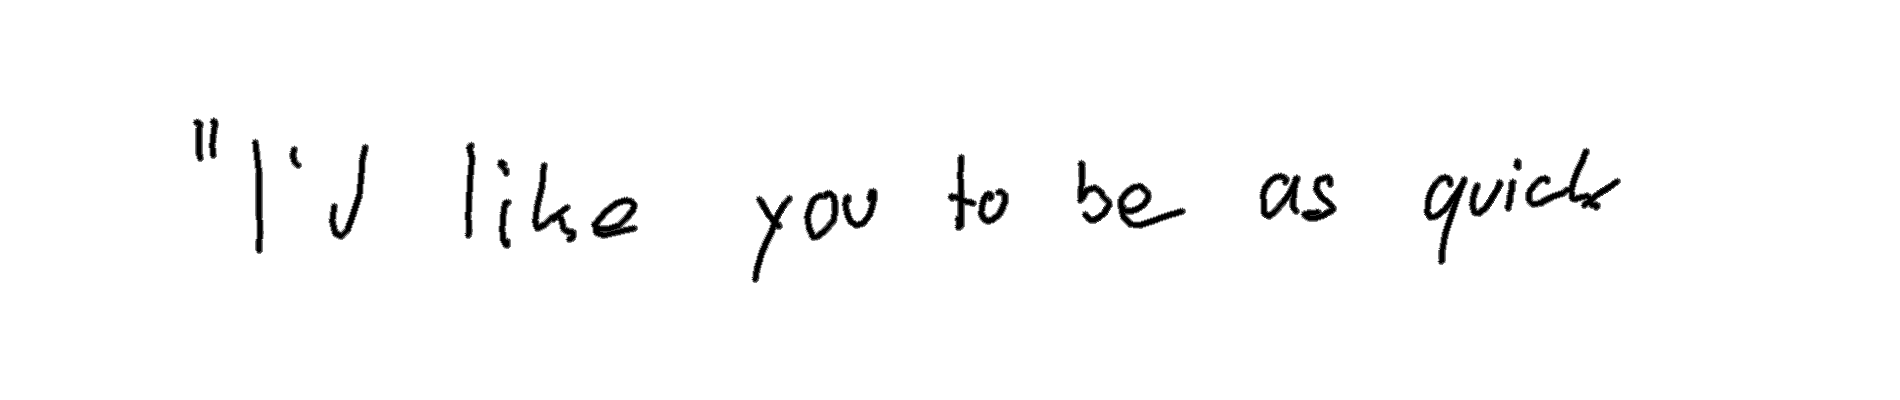 "I'd like you to be as quick